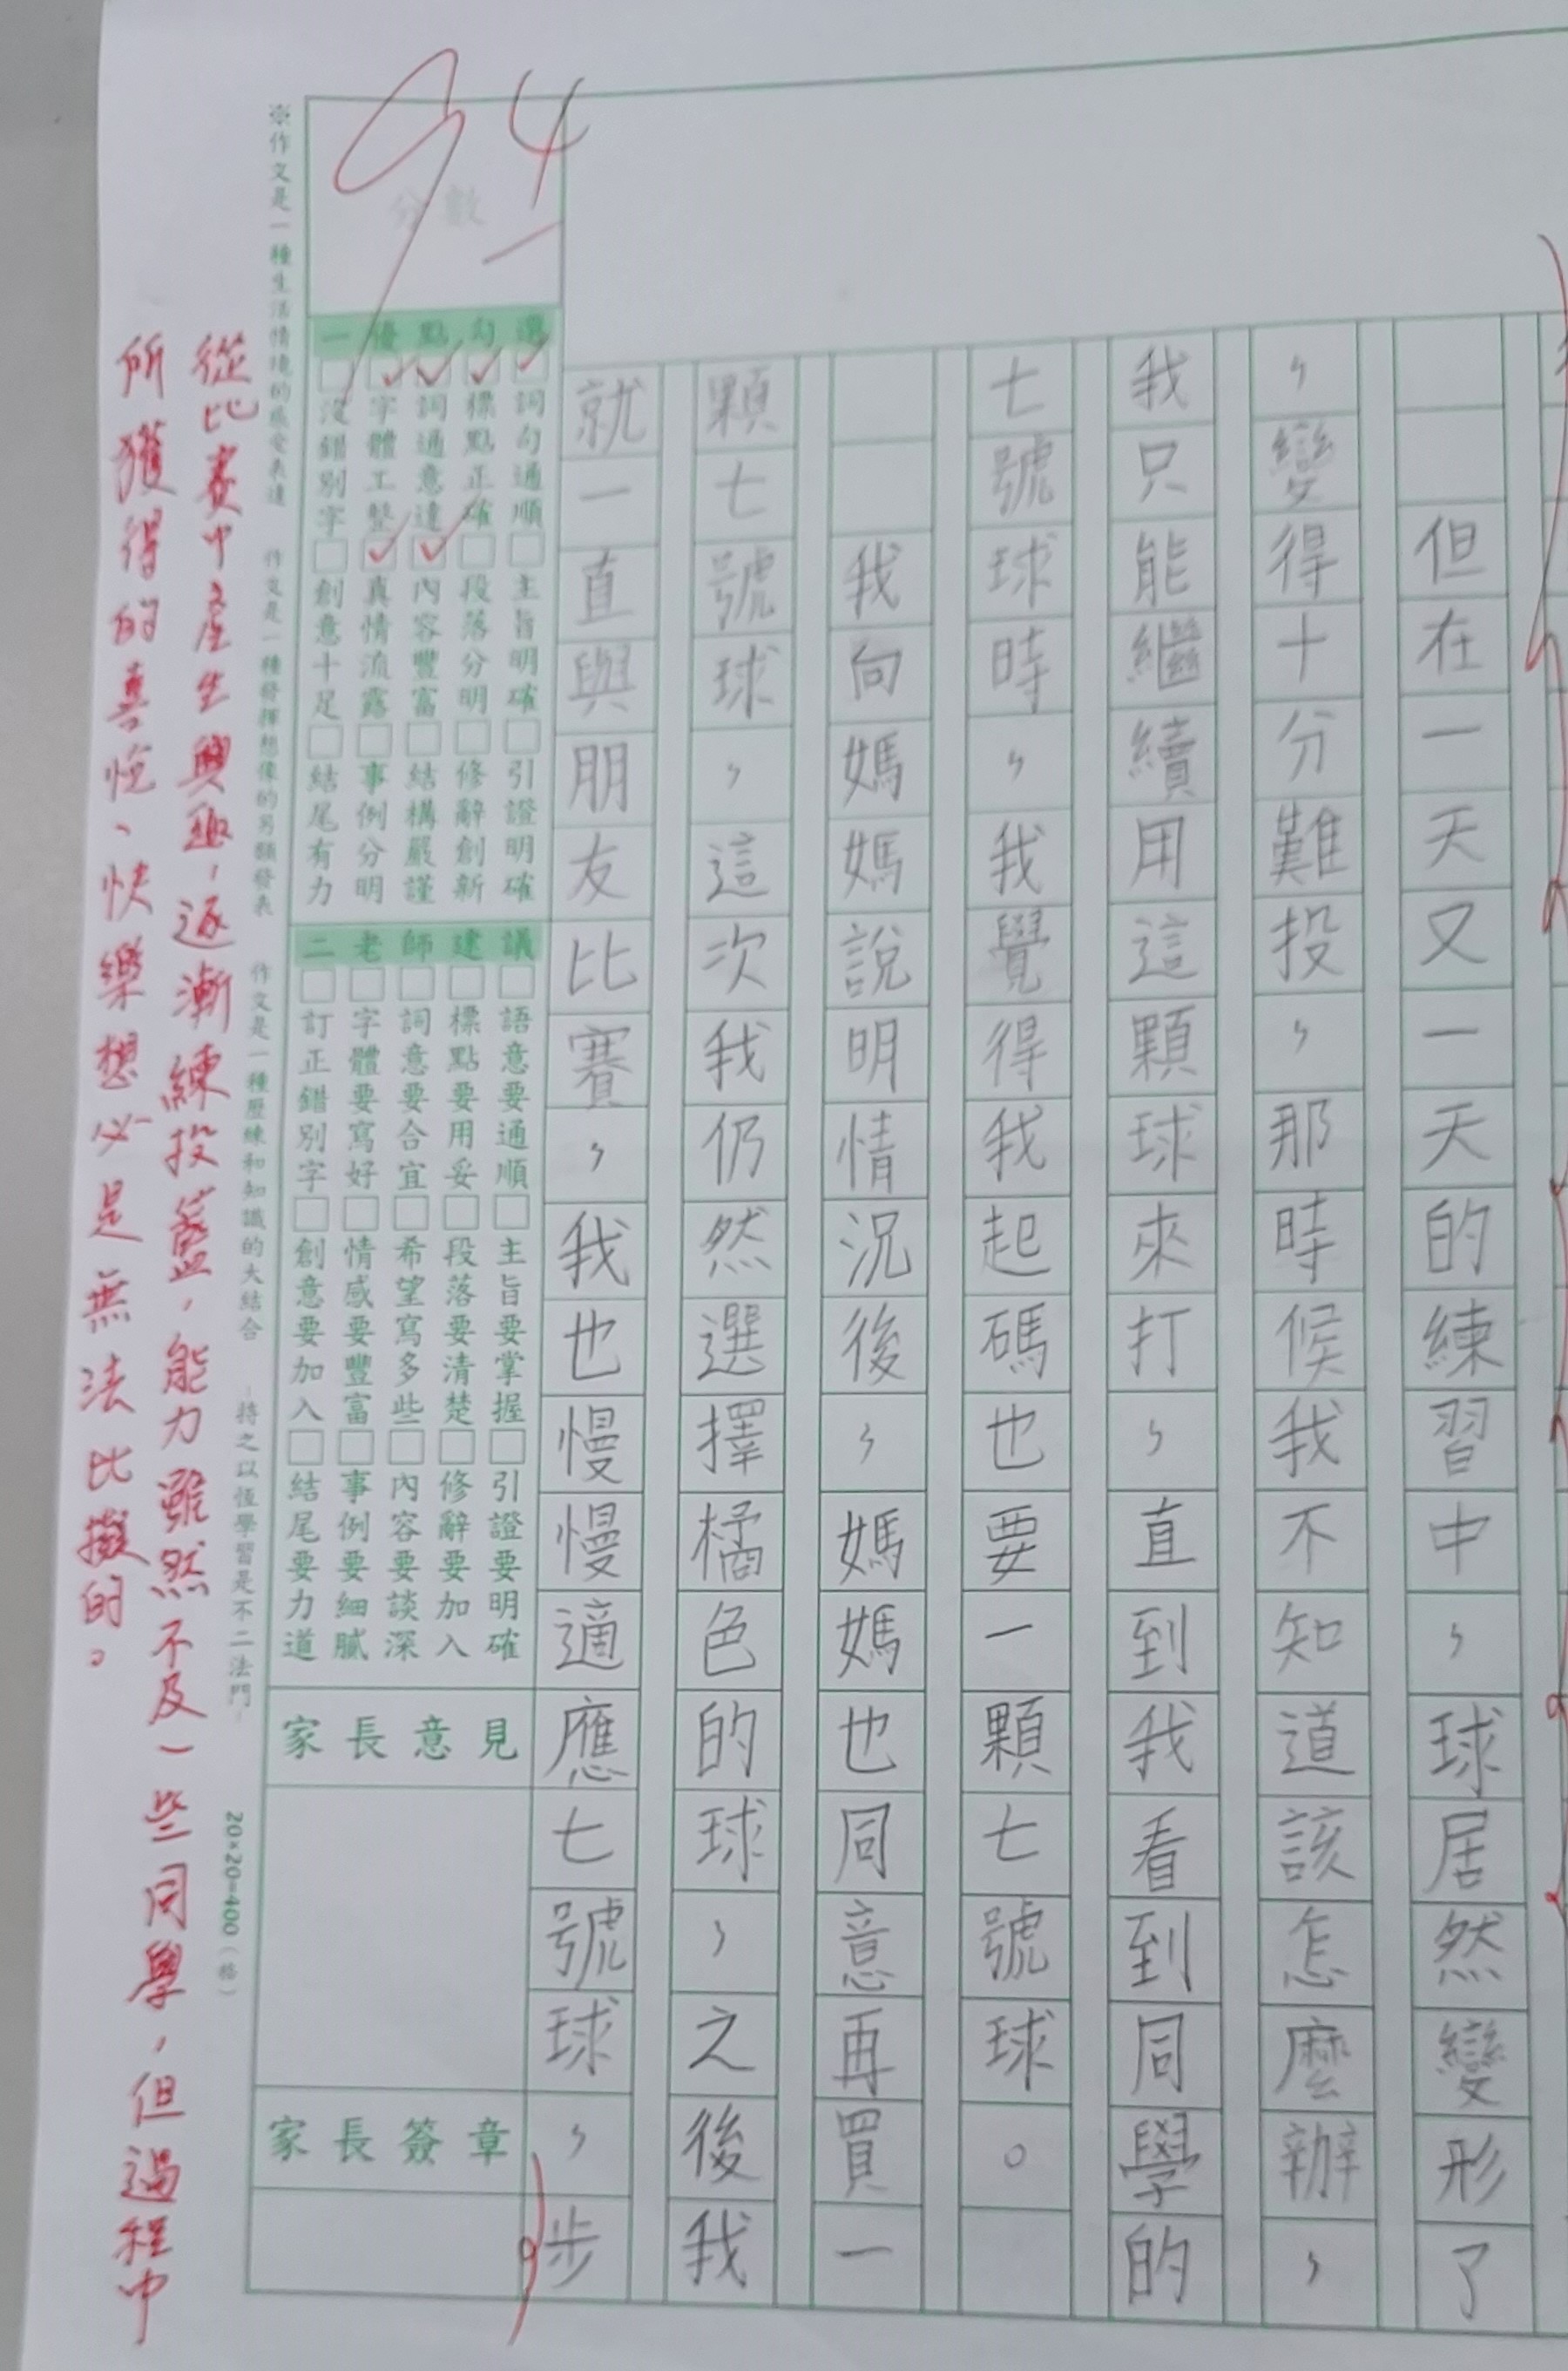 但在一天又一天的練習中，球居然變形了
，變得十分難投，那時候我不知道該怎麼辦，
我只能繼續用這顆球來打，直到我看到同學的
七號球時，我覺得我起碼也要一顆七號球。
我向媽媽說明情況後，媽媽也同意再買一
顆七號球，這次我仍然選擇橘色的球，之後我
就一直與朋友比賽，我也慢慢適應七號球，步
94
分數
一優點勾選
詞句通順
標點正確
詞通意達
字體工整
沒錯別字
主旨明確
段落分明
內容豐富
真情流露
創意十足
引證明確
修辭創新
結構嚴謹
事例分明
結尾有力
二老師建議
語意要通順
標點要用妥
詞意要合宜
字體要寫好
訂正錯別字
主旨要掌握
段落要清楚
希望寫多些
情感要豐富
創意要加入
引證要明確
修辭要加入
內容要談深
事例要細膩
結尾要力道
家長意見
家長簽章
※作文是一種生活情境的感受表達 作文是一種發揮想像的另類發表 作文是一種歷練和知識的大結合 -持之以恆學習是不二法門-
20×20=400（格）
從比賽中產生興趣，逐漸練投籃，能力雖然不及一些同學，但過程中
所獲得的喜悅、快樂想必是無法比擬的。